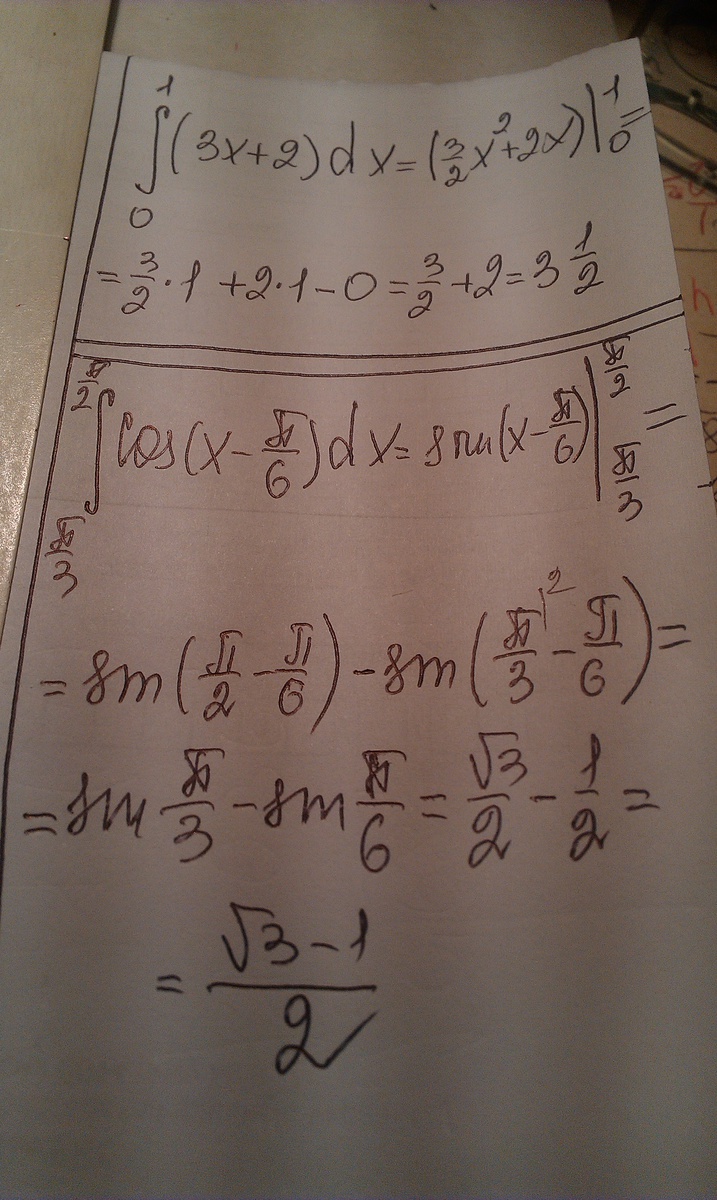 ∫₀¹ (3x+2) dx = (3/2 x² + 2x) |₀¹ =
= 3/2 · 1 + 2 · 1 − 0 = 3/2 + 2 = 3 1/2
∫_{π/3}^{π/2} cos(x − π/6) dx = sin(x − π/6) |_{π/3}^{π/2} =
= sin(π/2 − π/6) − sin(π/3 |² − π/6) =
= sin π/3 − sin π/6 = √3/2 − 1/2 =
= (√3 − 1)/2